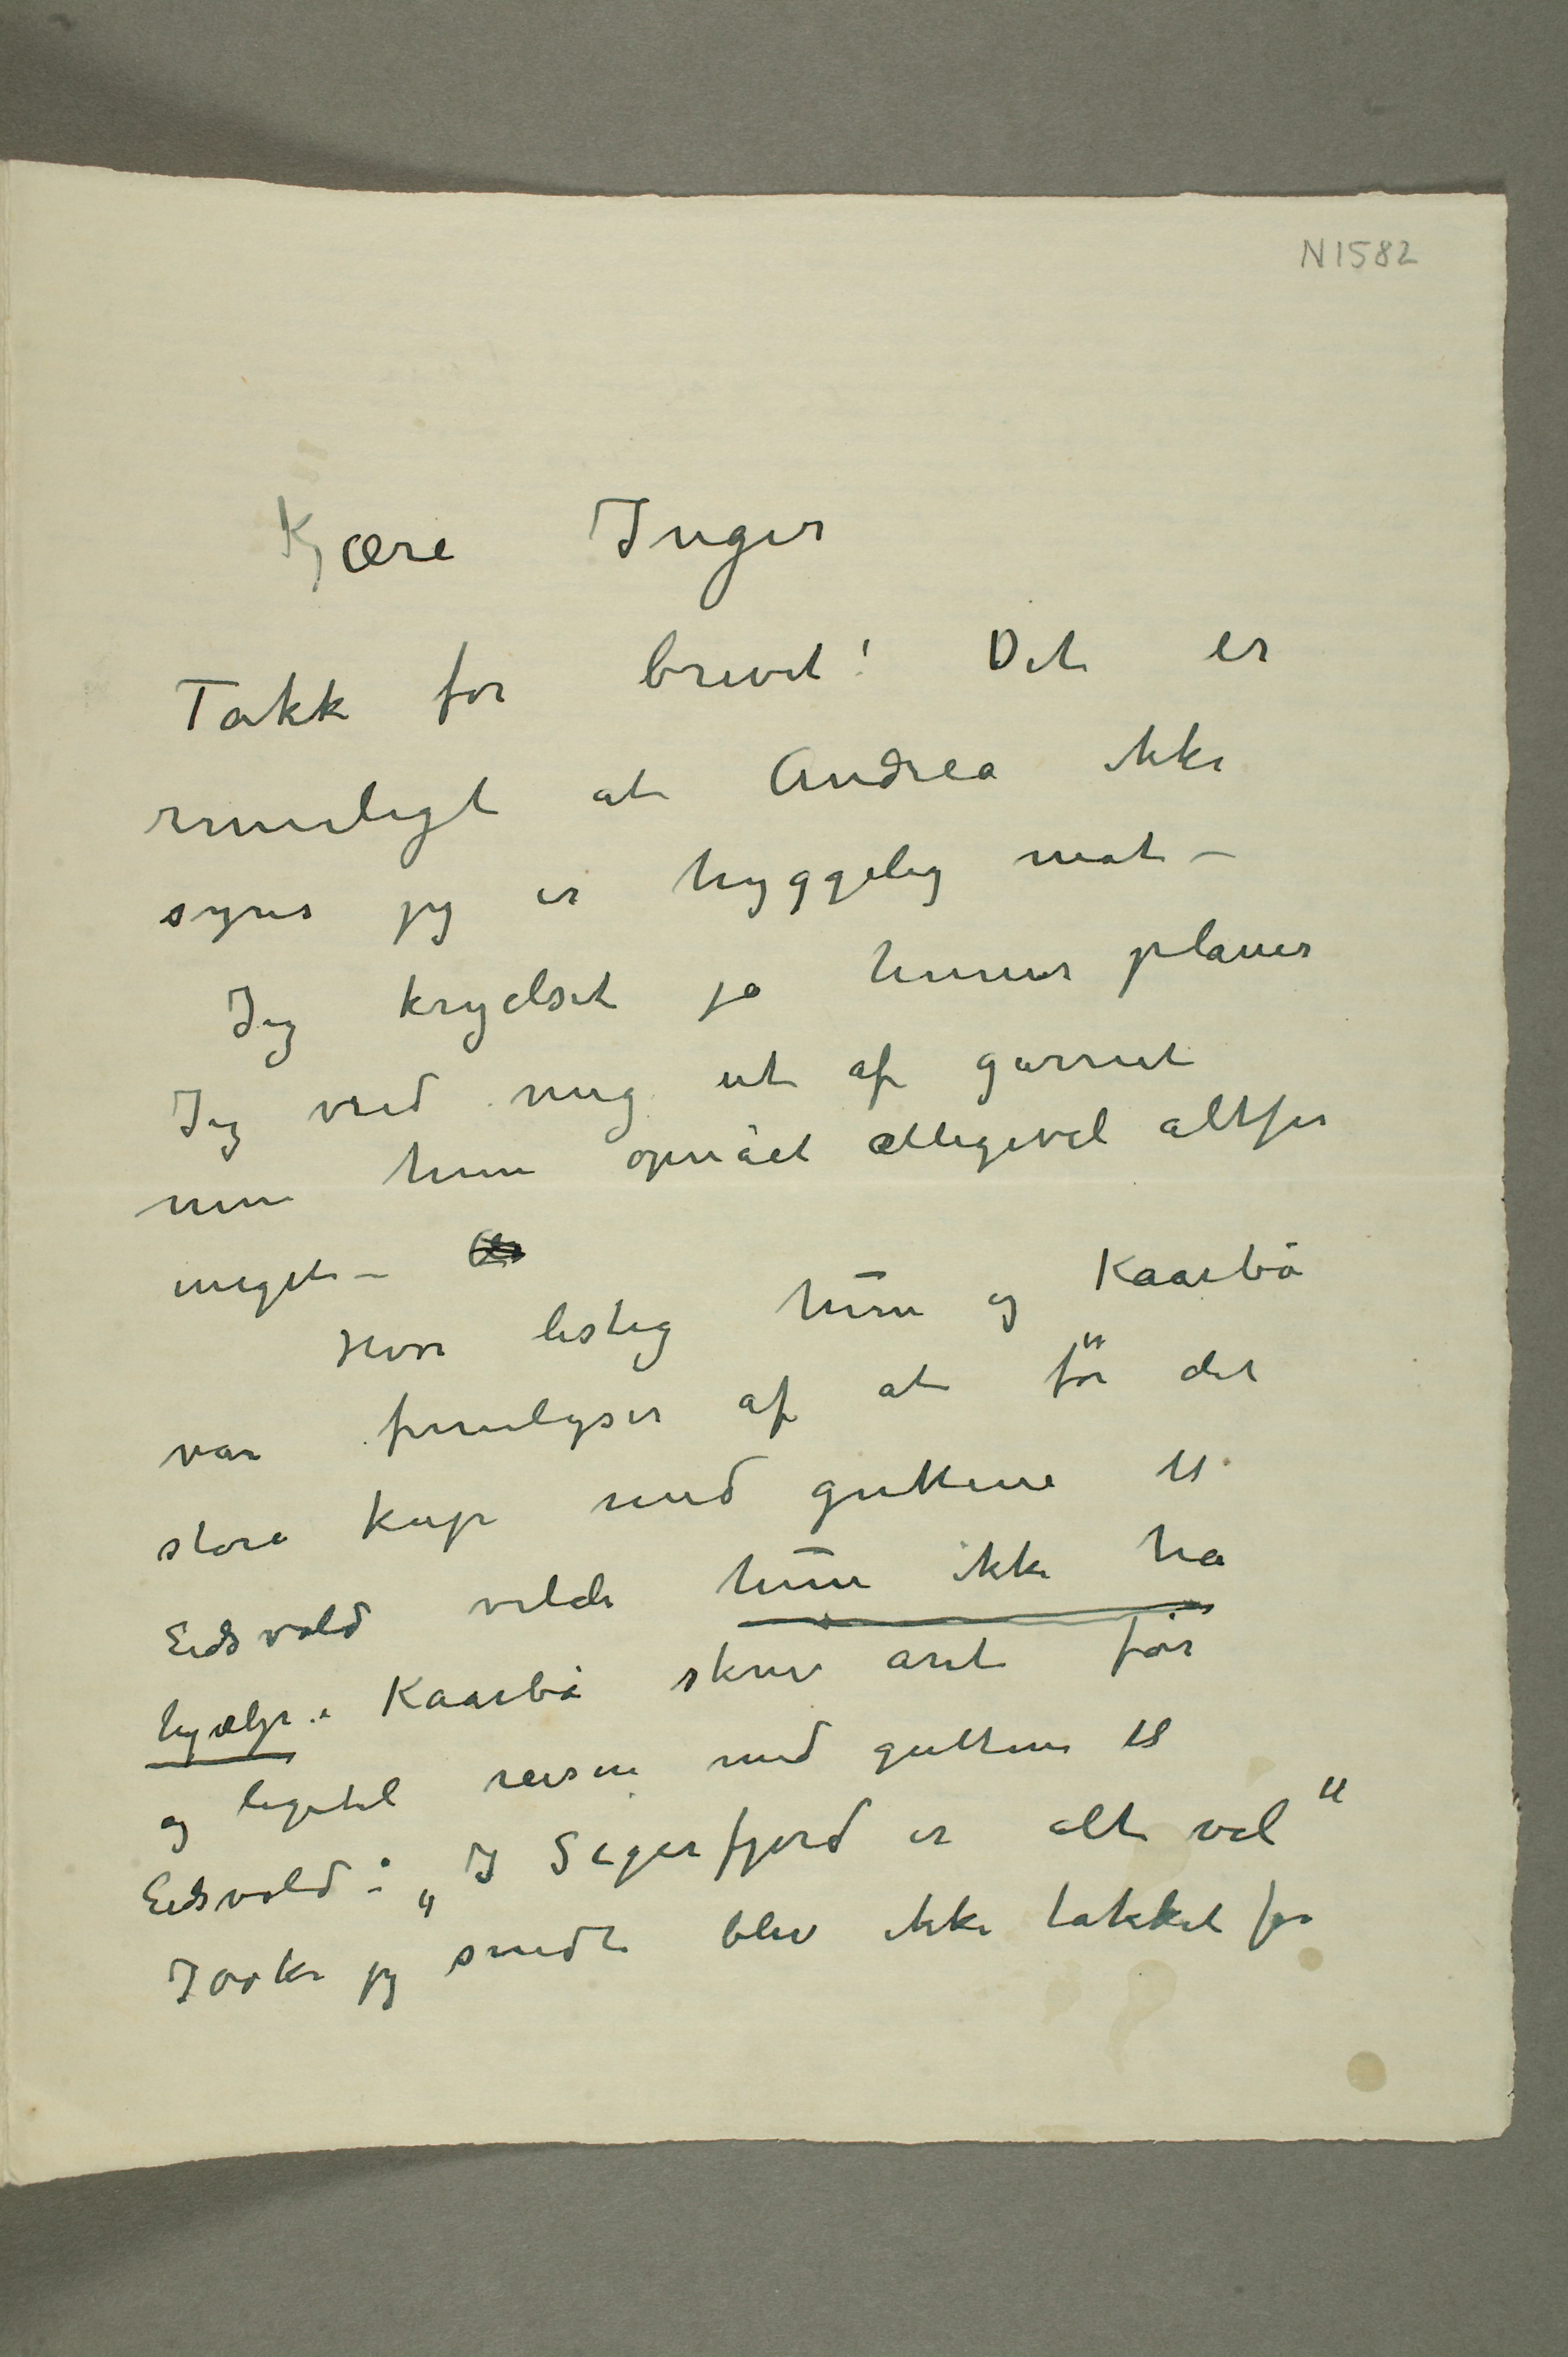 N1582
Kjære Inger
Takk for brevet! Det er
rimeligt at Andrea ikke
synes jeg er hyggelig mat –
Jeg krydset jo hennes planer
Jeg vred mig ut af garnet
men hun opnået alligevel altfor
meget –
Hvor listig hun og Kaarbö
var fremlyser af at för det
store kup med guttene til
Eidsvold vilde hun ikke ha
hjælp. Kaarbö skrev aret för
og ligetil reisen med guttene til
Eidsvold: „I Sigerfjord er alt vel"
Ja jeg sendte blev ikke takket for